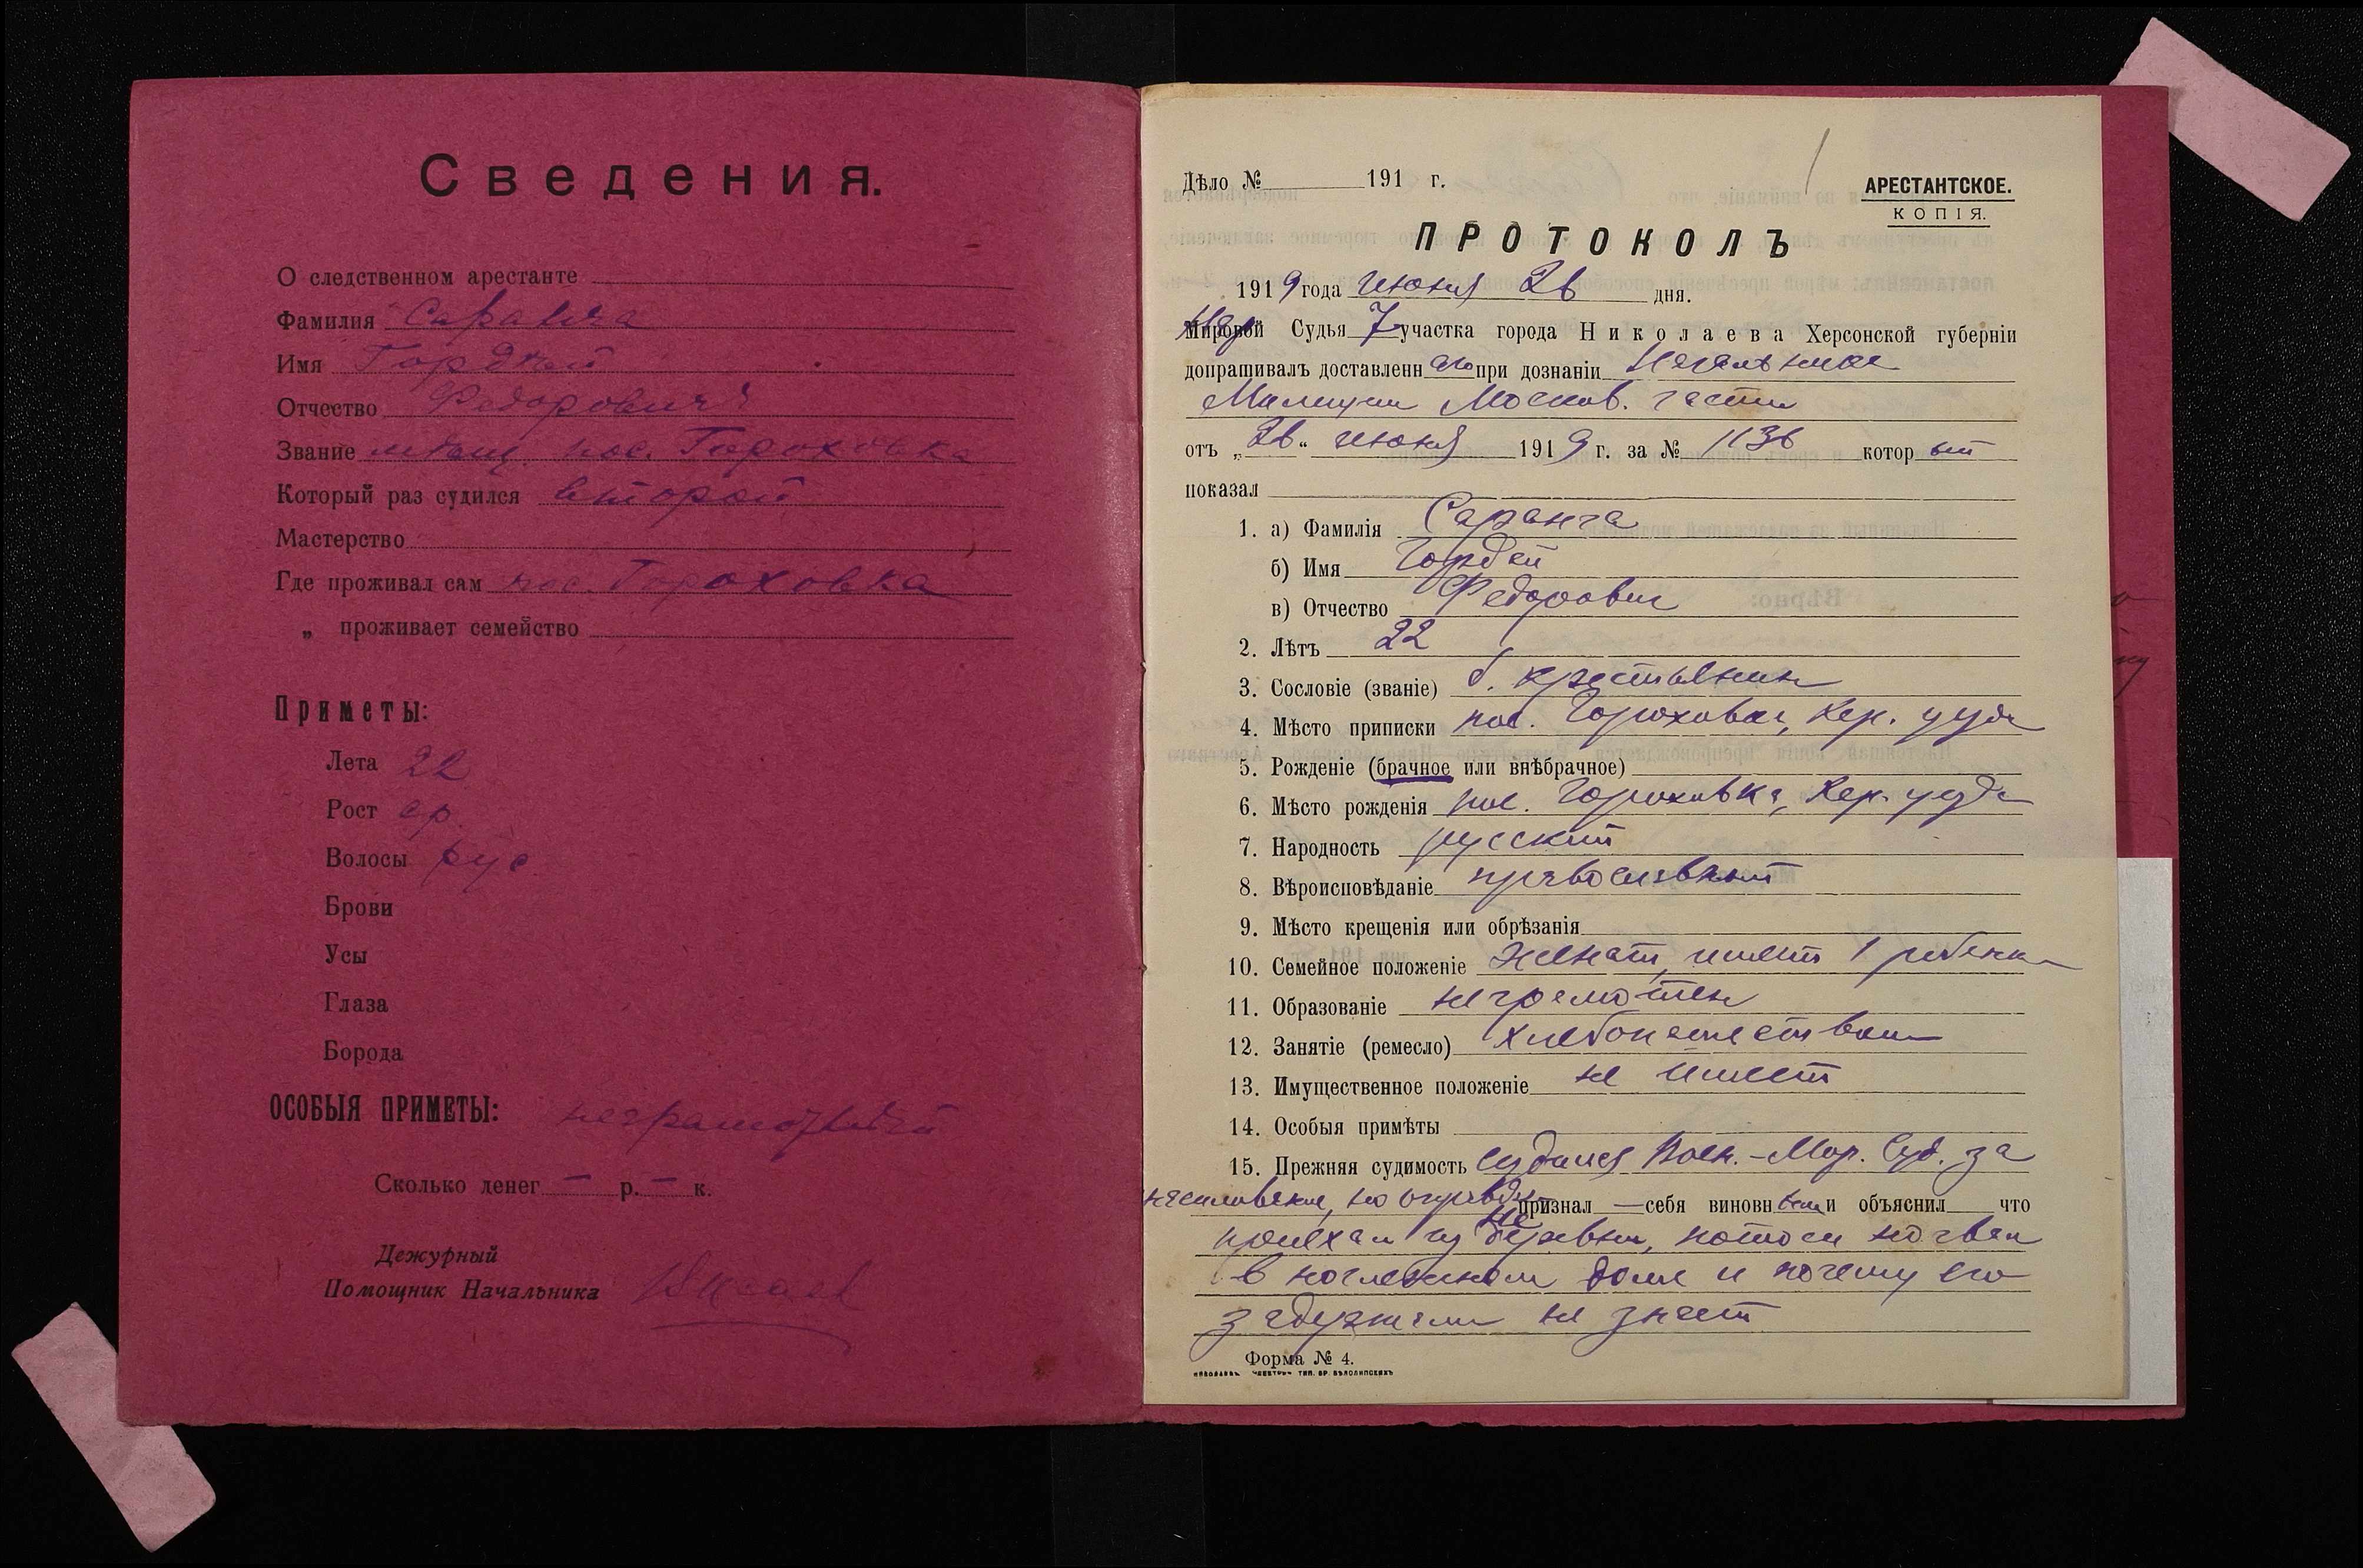 Сведения.
О следственном арестанте
Фамилия Саранча
Имя Гордей
Отчество Федорович
Звание мѣщ. пос. Гороховка
Который раз судился второй
Мастерство
Где проживал сам пос. Гороховка
„ проживает семейство
Приметы:
Лета 22
Рост ср.
Волосы рус
Брови
Усы
Глаза
Борода
ОСОБЫЯ ПРИМЕТЫ: неграмотный
Сколько денег — р. — к.
Дежурный
Помощник Начальника
Дѣло № 191 г.
АРЕСТАНТСКОЕ.
КОПІЯ.
ПРОТОКОЛЪ
1919 года июня 26 дня.
Мировой Судья 7 участка города Николаева Херсонской губерніи
допрашивалъ доставленн аго при дознаніи Начальника
Милиции Москов. части
отъ „26" июня 1919 г. за № 1136 котор ый
показал
1. а) Фамилія Саранча
б) Имя Гордей
в) Отчество Федорович
2. Лѣтъ 22
3. Сословіе (званіе) б. крестьянин
4. Мѣсто приписки пос. Гороховка, Хер. уезда
5. Рожденіе (брачное или внѣбрачное)
6. Мѣсто рожденія пос. Гороховка, Хер. уезда
7. Народность русский
8. Вѣроисповѣданіе православный
9. Мѣсто крещенія или обрѣзанія
10. Семейное положеніе женат, имеет 1 ребенка
11. Образованіе неграмотен
12. Занятіе (ремесло) хлебопашеством
13. Имущественное положеніе не имеет
14. Особыя примѣты
15. Прежняя судимость судился Воен.-Мор. Суд. за
изнасилование, но оправдан не признал — себя виновн ым и объяснил что
приехал из деревни, потом ночевал
в ночлежном доме и почему его
задержали не знает
Форма № 4.